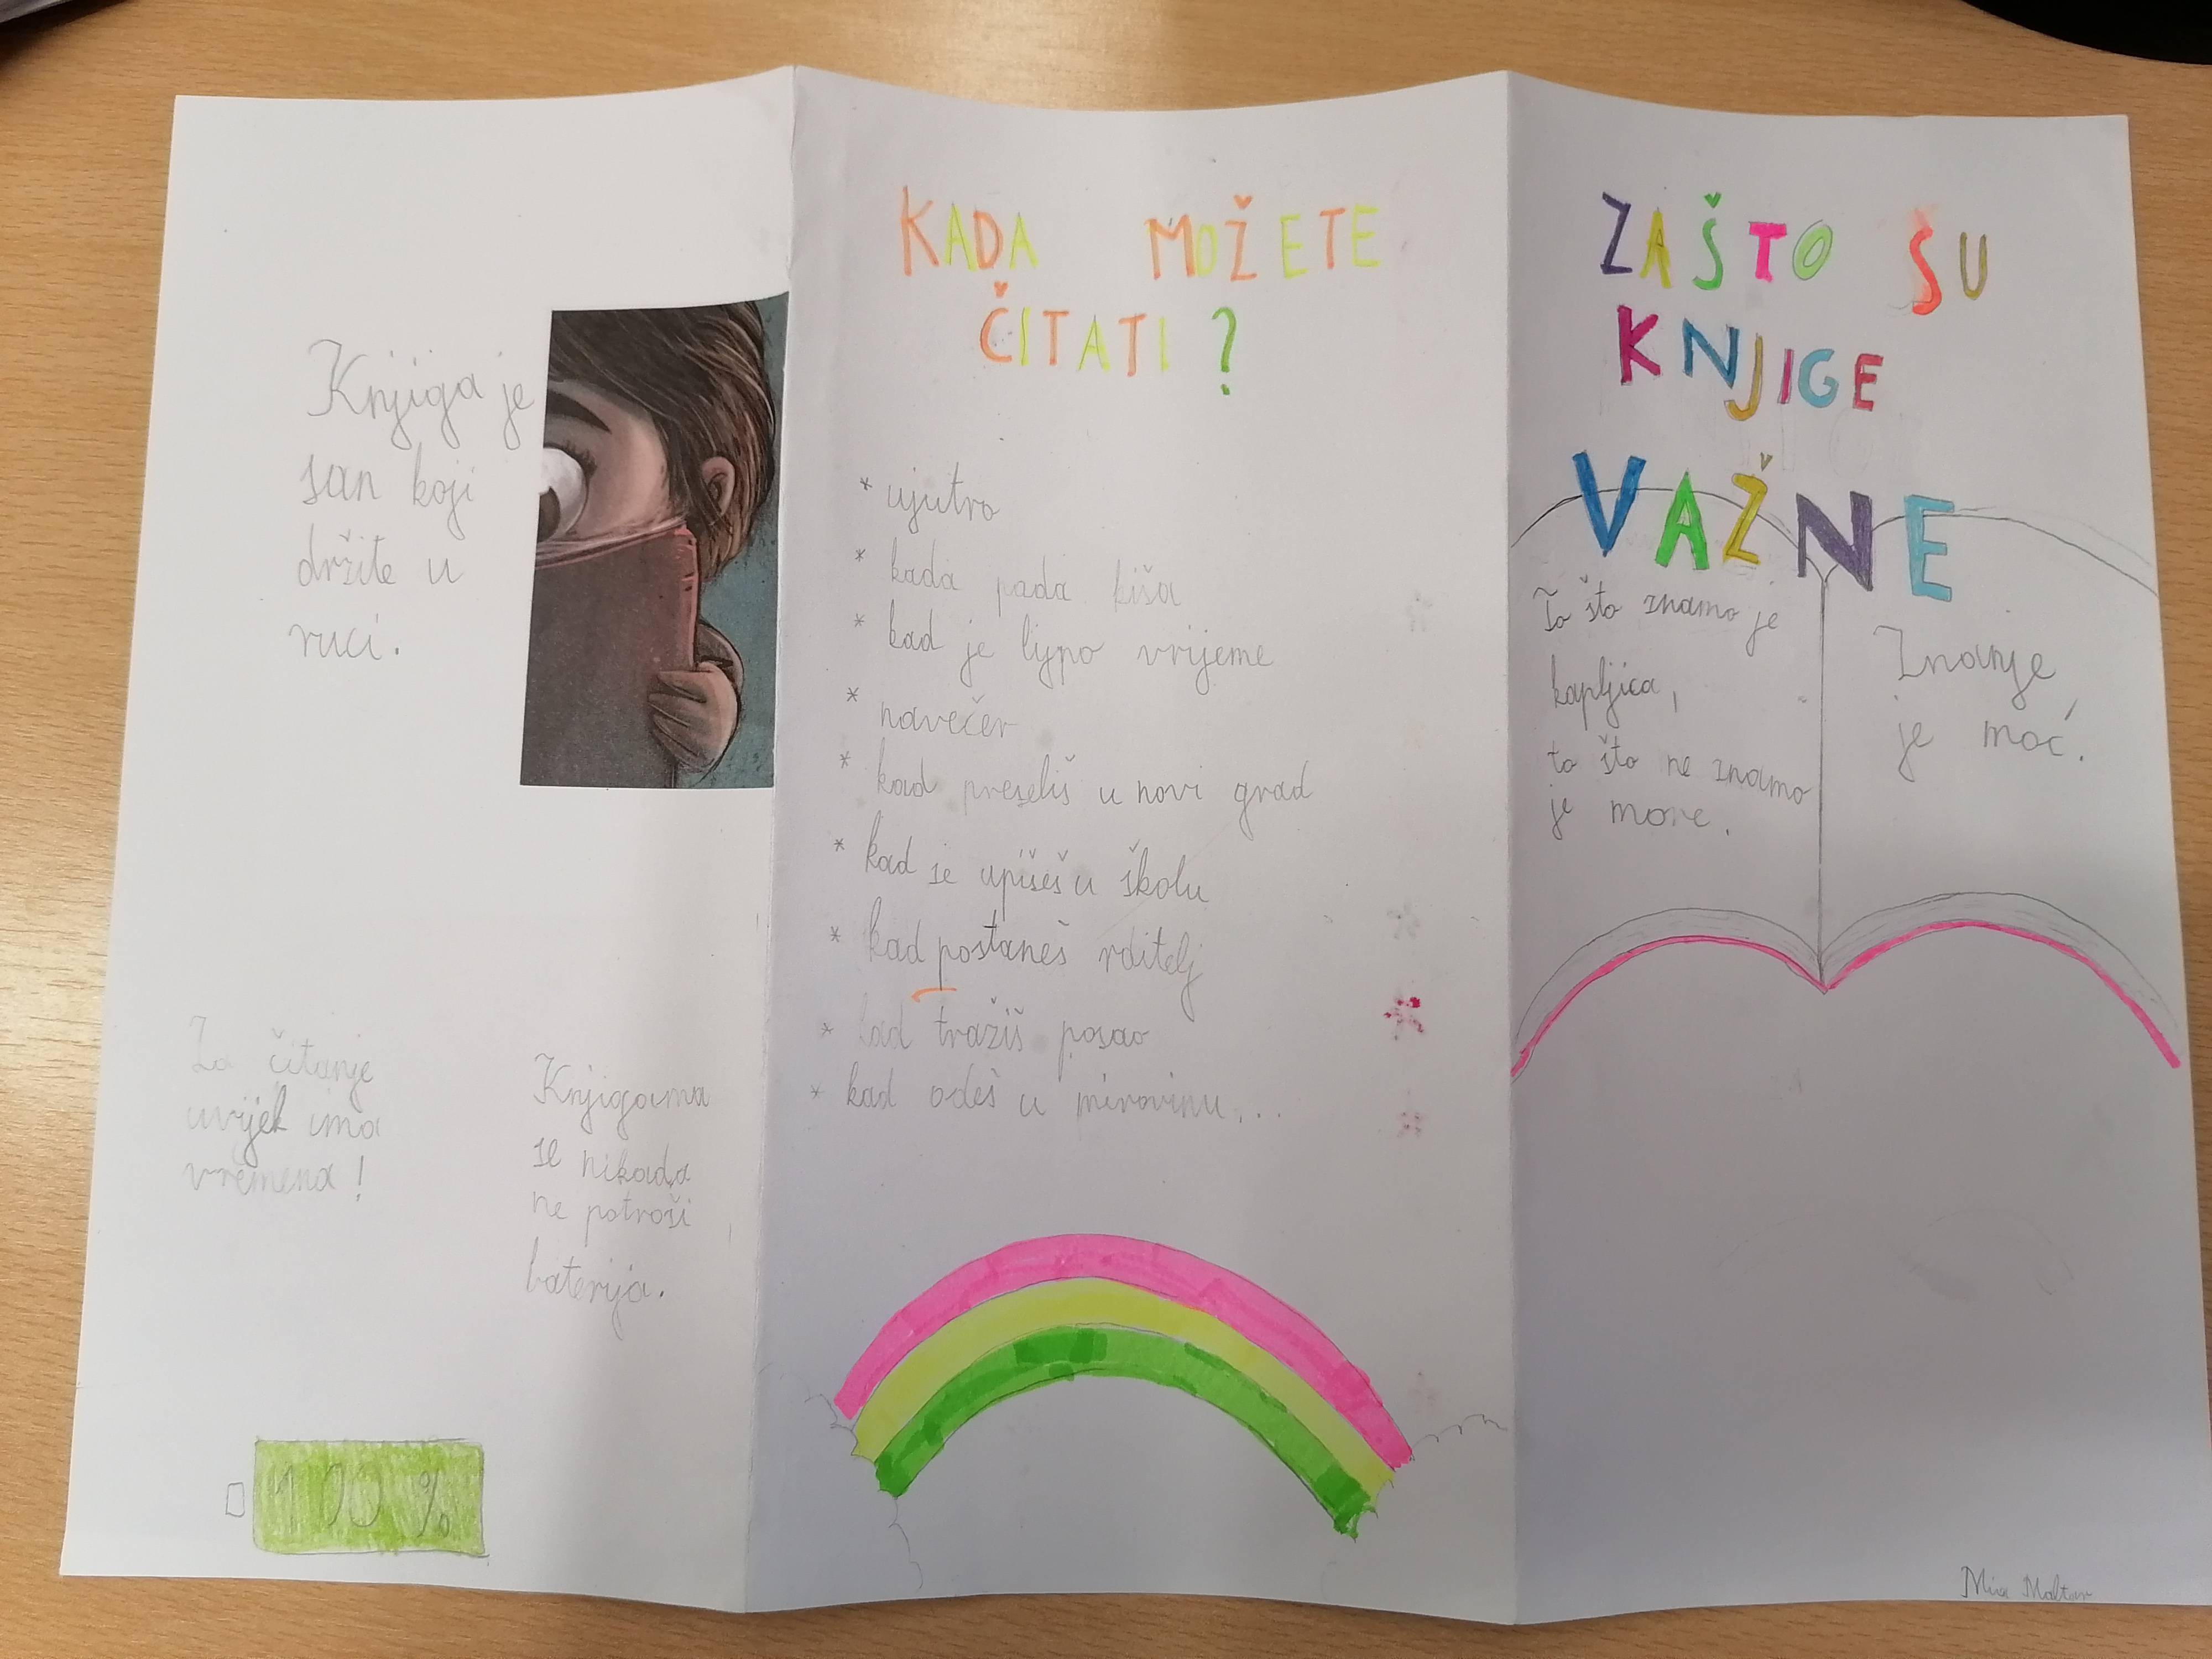 Knjiga je
san koji
držite u
ruci.
Za čitanje
uvijek ima
vremena!
Knjigama
se nikada
ne potroši
baterija.
100%
KADA MOŽETE
ČITATI?
* ujutro
* kada pada kiša
* kad je lijpo vrijeme
* navečer
* kad preseliš u novi grad
* kad se upišeš u školu
* kad postaneš rditelj
* kad tražiš posao
* kad odeš u mirovinu...
ZAŠTO SU
KNJIGE
VAŽNE
To što znamo je
kapljica,
to što ne znamo
je more.
Znanje
je moć.